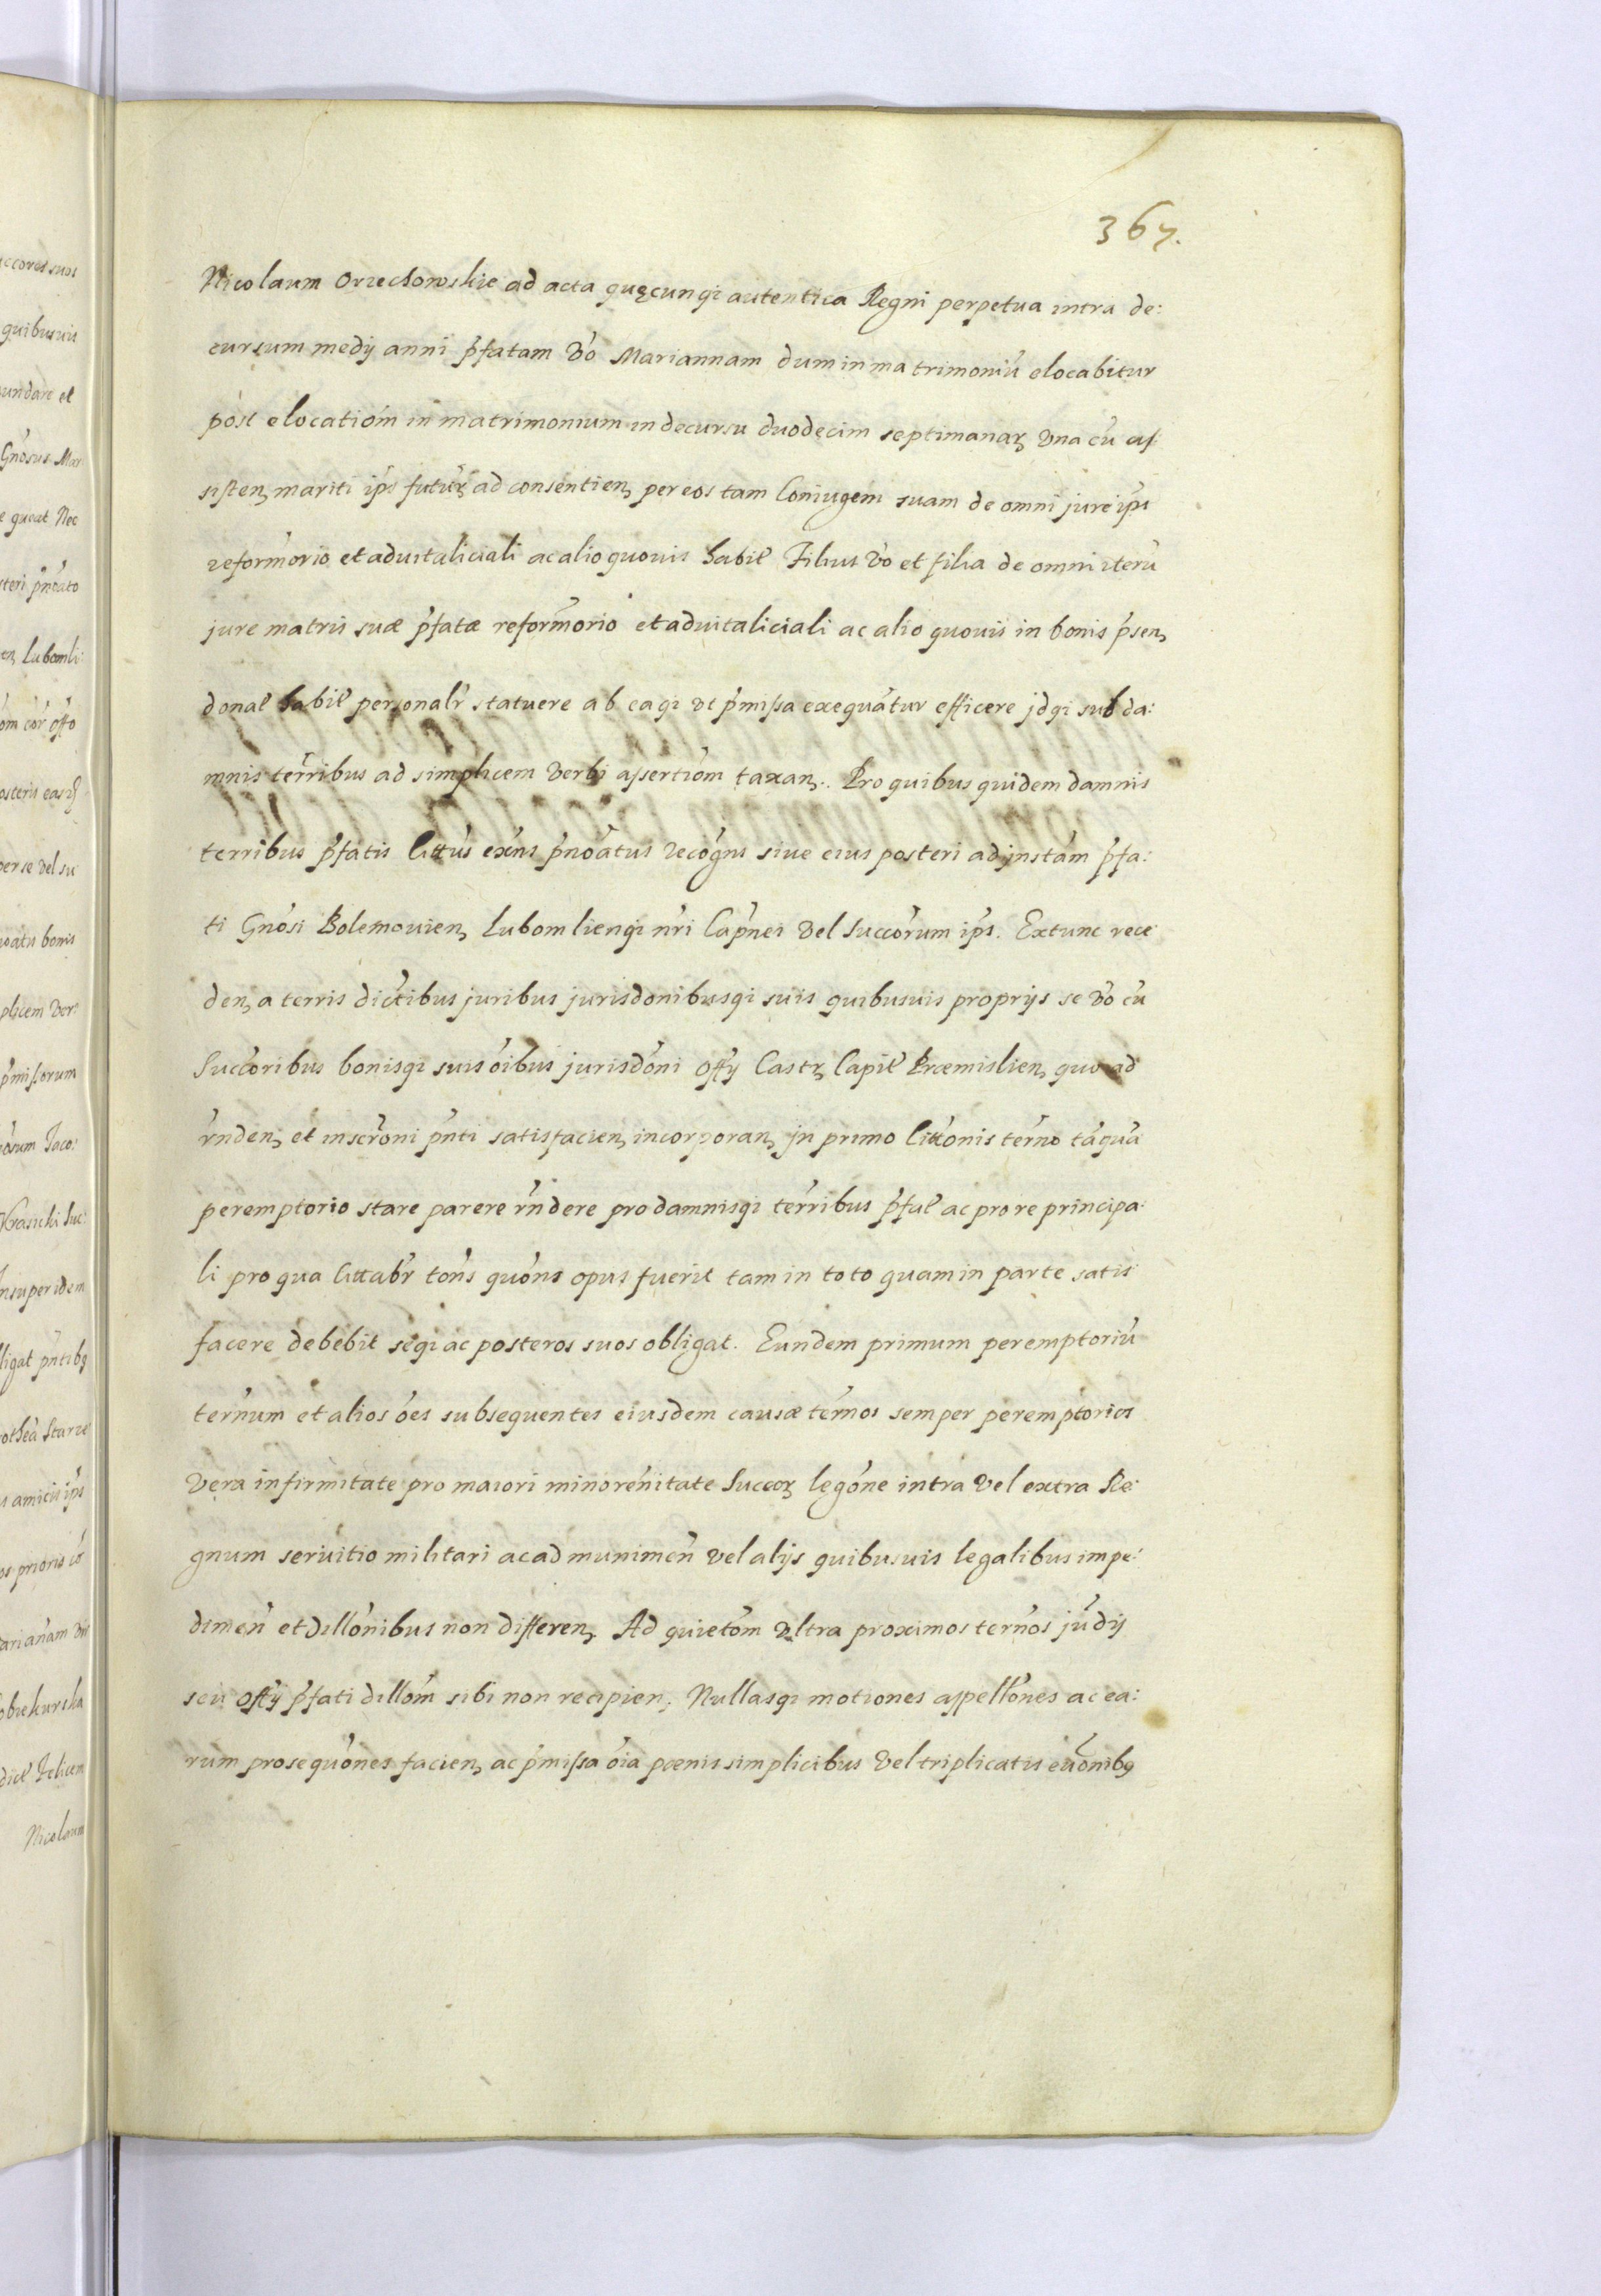 367.
Nicolaum Orzechowskie ad acta quęcunqꝫ autentica Regni perpetua intra de:
cursum medij anni p̃fatam ṽo Mariannam dum in matrimoniũ elocabitur
pòst elocatiõm in matrimonium in decursu duodecim septimanaꝝ vna cũ as
sisten, mariti ip̃s futuꝝ ad consentien, per eos tam Coniugem suam de omni jure ip̃s
reform̃orio et aduitaliciali ac alio quouis habił Filius ṽo et filia de omni iterũ
jure matris suæ p̃fatæ reform̃orio et aduitaliciali ac alio quouis in bonis p̃sen,
donał habił personalr̃ statuere ab eaqꝫ vt p̃missa exequãtur efficere jdqꝫ sub da:
mnis ter̃ribus ad simplicem verbi assertiõm taxan,. Pro quibus quidem damnis
terribus p̃fatis litt̃us ex̃ns p̃nõatus recõgns siue eius posteri ad jnstãm p̃fa:
ti Gñosi Bolemouien, Lubomlienqꝫ ñri Cap̃nei vel Succõrum ip̃s. Extunc rece
den, a terris dictibus juribus jurisdonibusqꝫ suis quibusuis proprijs se ṽo cũ
Succõribus bonisqꝫ suis õibus jurisdõni Offij Castꝝ Capił Præmislien, quo ad
r̃nden, et inscr̃oni p̃nti satisfacien, incorporan, jn primo litt̃onis ter̃no tãquã
peremptorio stare parere r̃ndere pro damnisqꝫ ter̃ribus p̃fał ac pro re principa:
li pro qua littabr̃ tõns quõns opus fuerit tam in toto quam in parte satis
facere debebit seqꝫ ac posteros suos obligat. Eundem primum peremptoriũ
ter̃num et alios ões subsequentes eiusdem causæ ter̃nos semper peremptorios
vera infirmitate pro maiori minorẽnitate Succoꝝ legõne intra vel extra Re:
gnum seruitio militari ac ad munimeñ vel alijs quibusuis legalibus impe:
dimeñ et dillõnibus non differen, Ad quietõm vltra proximos ter̃nos jũdij
seu Offij p̃fati dillõm sibi non recipien, Nullasqꝫ motiones appellõnes ac ea:
rum prosequõnes facien, ac p̃missa õia pœnis simplicibus vel triplicatis euõnibꝰ